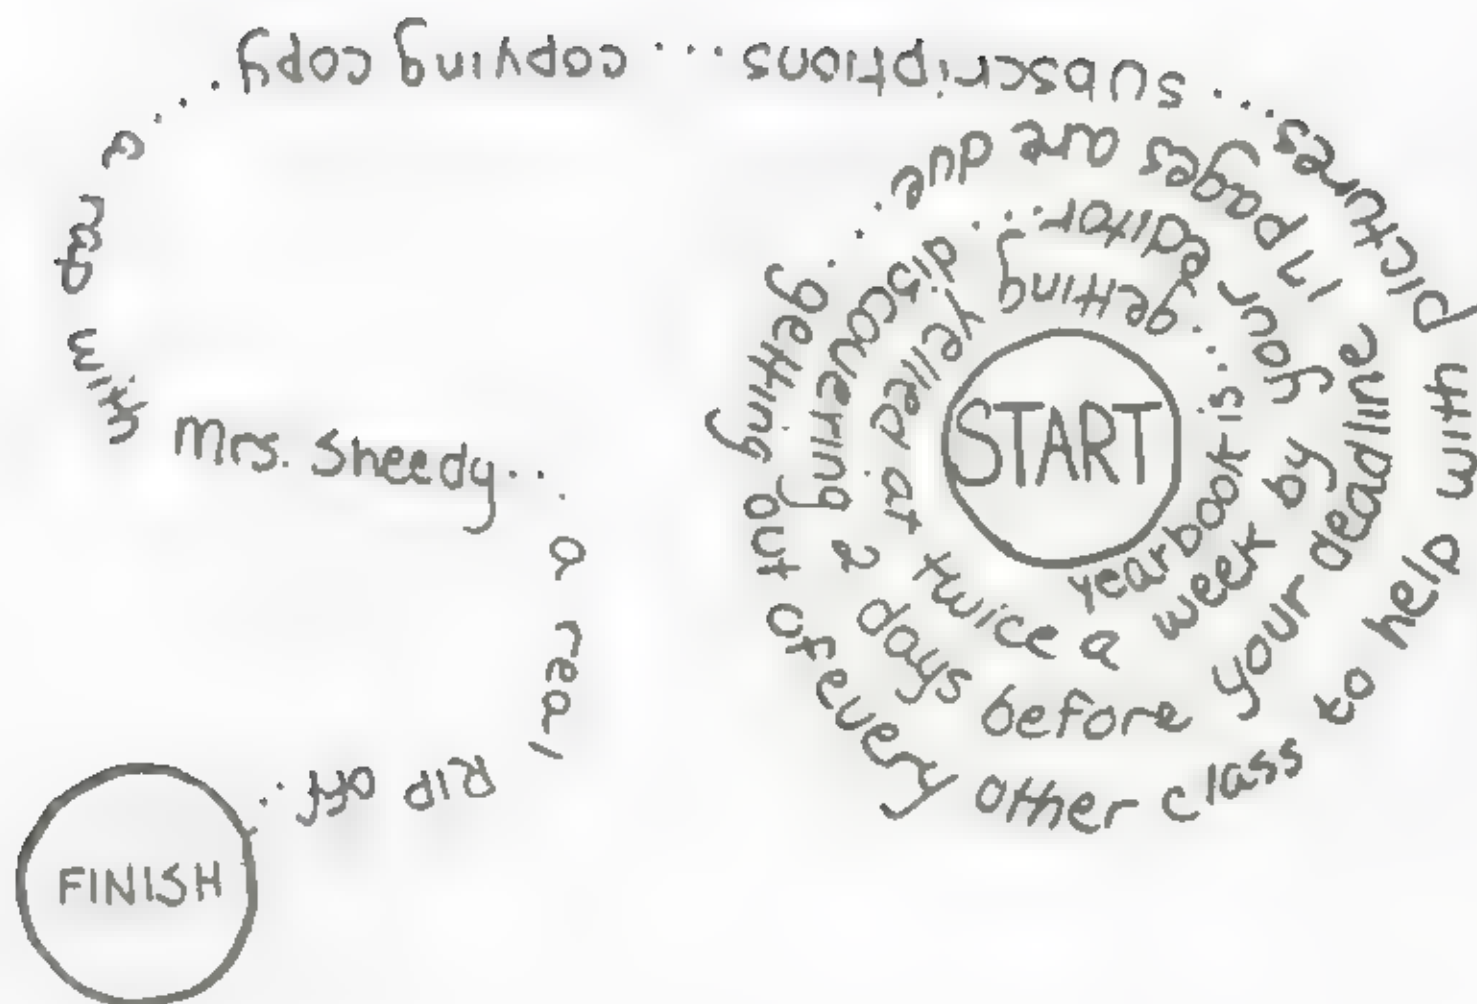 START
yearbook is... getting yelled at twice a week by your editor... discovering 2 days before your deadline 17 pages are due... getting out of every other class to help with pictures... subscriptions... copying copy... a rap with Mrs. Sheedy... a real RIP off...
FINISH